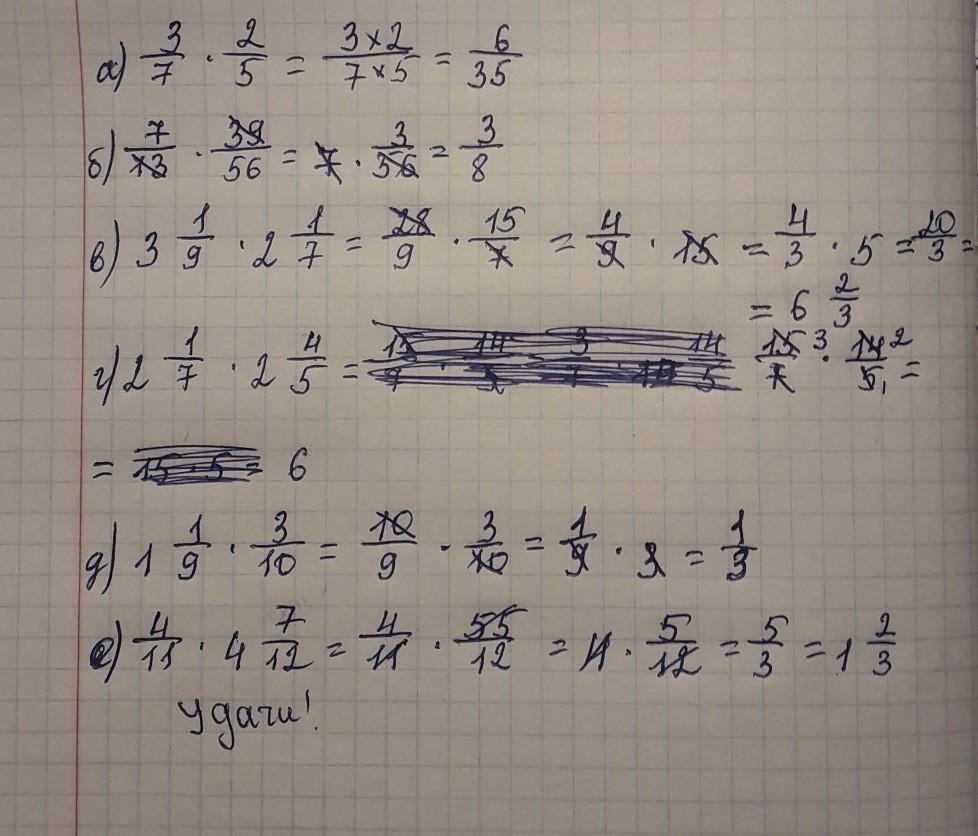 а) 3/7 · 2/5 = 3×2/7×5 = 6/35
б) 7/13 · 39/56 = 7 · 3/56 = 3/8
в) 3 1/9 · 2 1/7 = 28/9 · 15/7 = 4/9 · 15 = 4/3 · 5 = 20/3 =
= 6 2/3
г) 2 1/7 · 2 4/5 = 15/7 3 · 14/5 2 1 =
= 6
д) 1 1/9 · 3/10 = 10/9 · 3/10 = 1/9 · 3 = 1/3
е) 4/11 · 4 7/12 = 4/11 · 55/12 = 4 · 5/12 = 5/3 = 1 2/3
Удачи!